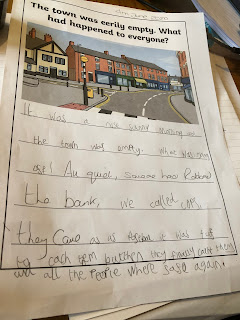 The town was eerily empty. What
had happened to everyone?
It was a nice sunny morning and
the town was empty. What was going
on! All quiet, someone has Robbed
the bank, we called cops,
they came as it was
to catch them but then they finally
and all the People where safe again.